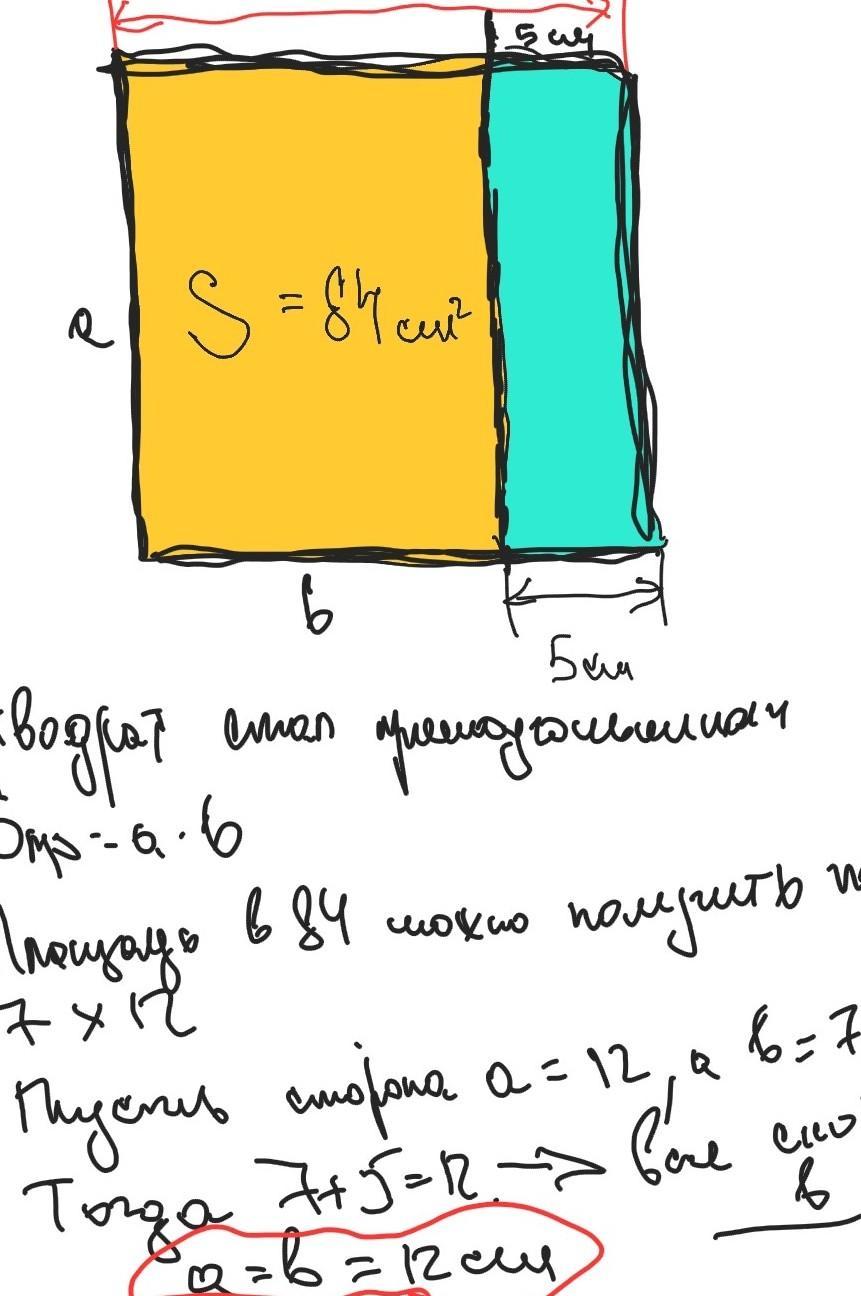 5 см
a
S = 84 см²
b
5 см
квадрат стал прямоугольником
Sпр = a · b
Площадь в 84 можно получить
7 × 12
Пусть сторона a = 12, а b = 7
Тогда 7+5=12 → все
в
a = b = 12 см